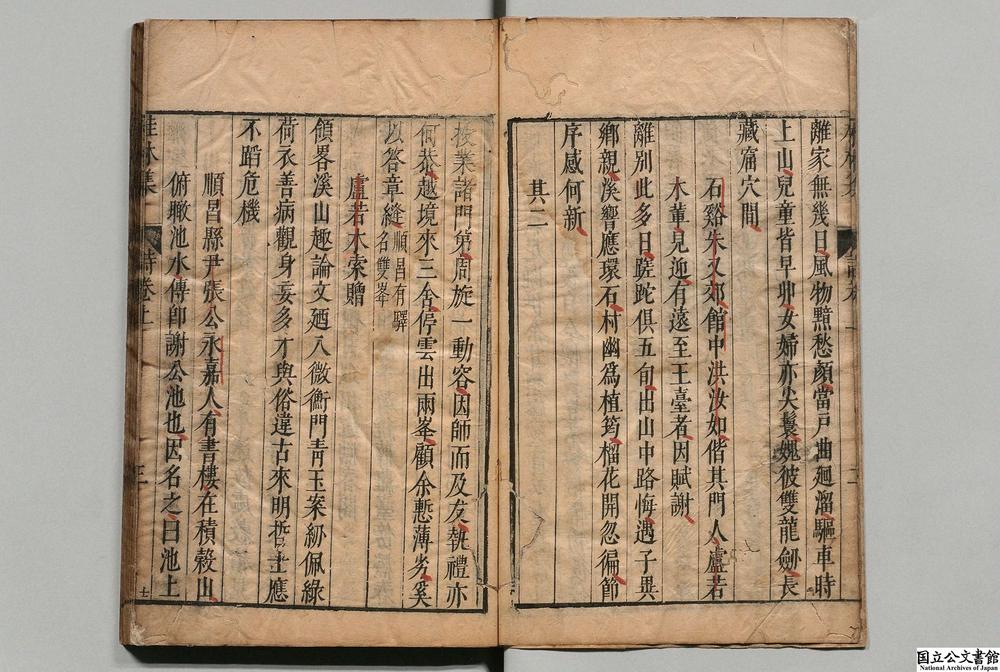 離家無幾日風物黯愁顏當戶曲廻溜驅車時
上山兒童皆早丱女婦亦尖鬟媿彼雙龍劒長
藏窟穴間
石谿朱又郊館中洪汝如偕其門人盧若
木輩見迎有遠至王臺者因賦謝
離別此多日蹉跎俱五旬出山中路悔遇子異
鄉親溪響應環石村幽爲植筠榴花開忽徧節
序感何新
其二
授業諸門第周旋一動容因師而及友執禮亦
何恭越境來三舍停雲出兩峯顧余慙薄劣奚
以答章縫順昌有驛名雙峯
盧若木索贈
領畧溪山趣論文廼入微衡門青玉案紉佩綠
荷衣善病觀身妄多才與俗違古來明哲士應
不蹈危機
順昌縣尹張公永嘉人有書樓在積穀山
俯瞰池水傳卽謝公池也因名之曰池上
詩卷上
国立公文書館
National Archives of Japan